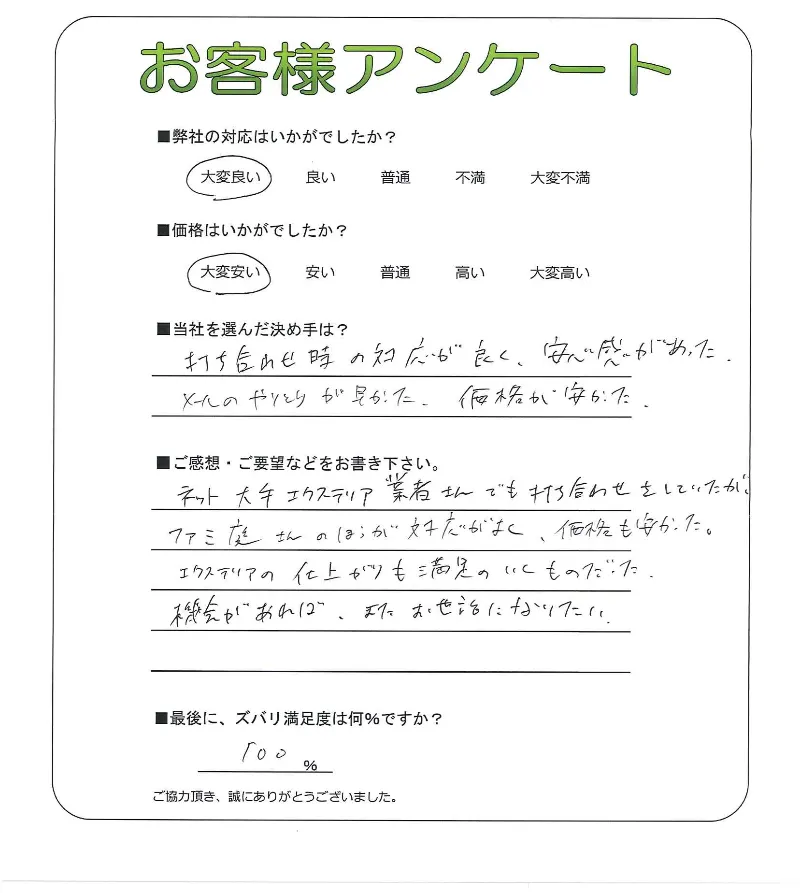 お客様アンケート
■弊社の対応はいかがでしたか？
大変良い 良い 普通 不満 大変不満
■価格はいかがでしたか？
大変安い 安い 普通 高い 大変高い
■当社を選んだ決め手は？
打ち合わせ時の対応が良く、安心感があった.
メールのやりとりが早かった. 価格が安かった.
■ご感想・ご要望などをお書き下さい。
ネット大手エクステリア業者さんでも打ち合わせをしていたが、
ファミ庭さんのほうが対応がよく、価格も安かった。
エクステリアの仕上がりも満足のいくものだった.
機会があれば、またお世話になりたい.
■最後に、ズバリ満足度は何%ですか？
100 %
ご協力頂き、誠にありがとうございました。